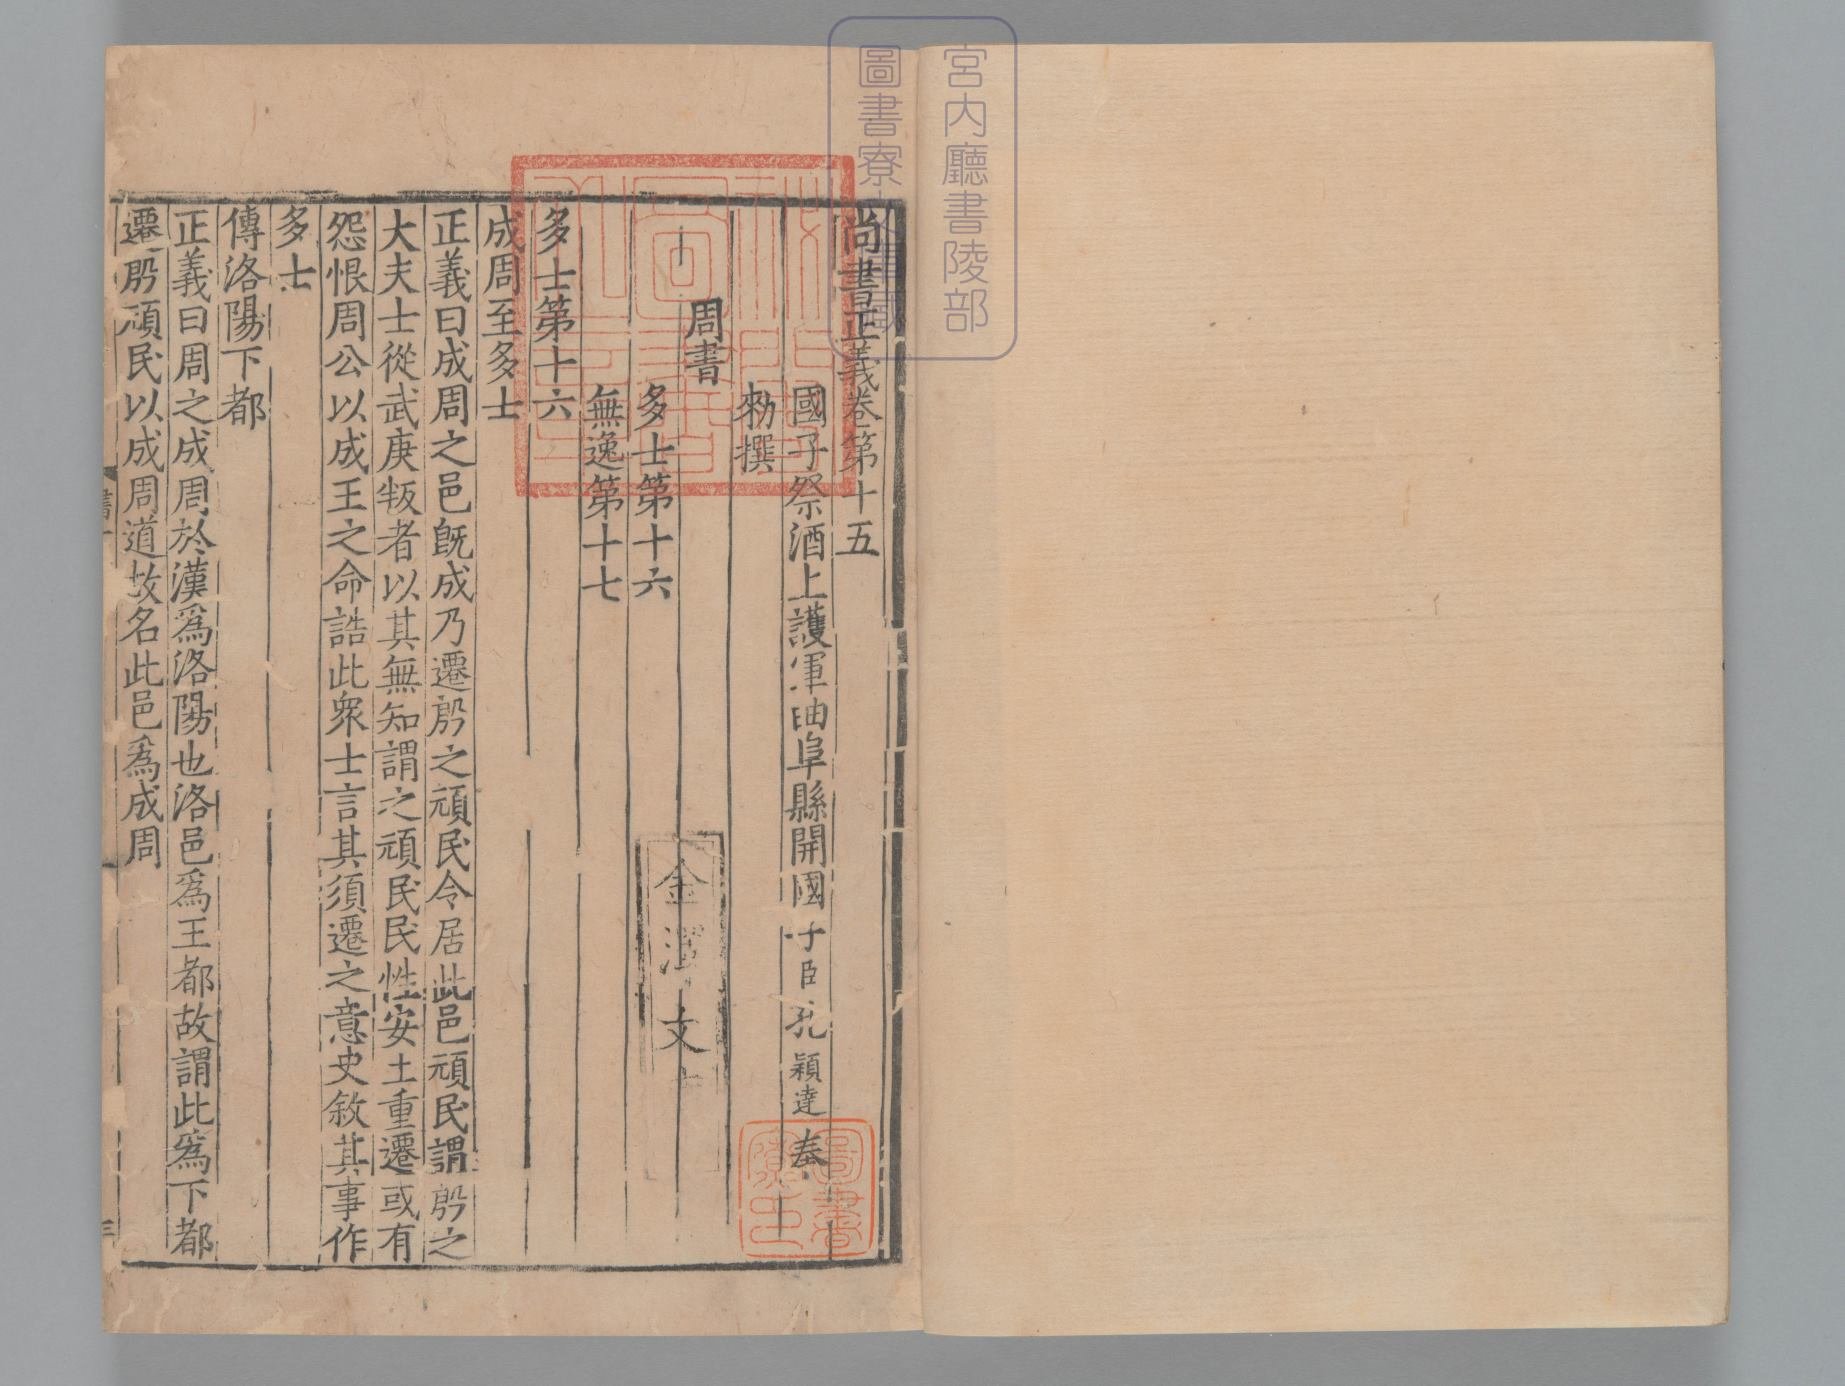 宮內廳書陵部
圖書寮
尚書正義卷第十五
國子祭酒上護軍曲阜縣開國子臣孔穎達奉
勑撰
周書
多士第十六
無逸第十七
多士第十六
成周至多士
正義曰成周之邑旣成乃遷殷之頑民令居此邑頑民謂殷之
大夫士從武庚叛者以其無知謂之頑民民性安土重遷或有
怨恨周公以成王之命誥此衆士言其須遷之意史敘其事作
多士
傳洛陽下都
正義曰周之成周於漢爲洛陽也洛邑爲王都故謂此爲下都
遷殷頑民以成周道故名此邑爲成周
金澤文
圖書寮印